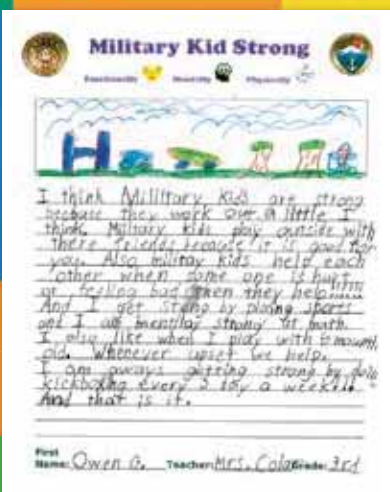 Military Kid Strong
Emotionally Mentally Physically
I think Millitary Kids are strong
because they work out a little I
think. Military kids play outside with
there friends because it is good for
you. Also militay kids help each
other when some one is hurt
or feeling bad then they help
And I get stong by plaing sports
and I am mentlay strong at math.
I also like when I play with 6 mounth
old. Whenever upset we help.
I am aways getting strong by
kickboxing every 2 day a week!!!
And that is it.
First
Name: Owen G. Teacher: Mrs. Grade: 3rd